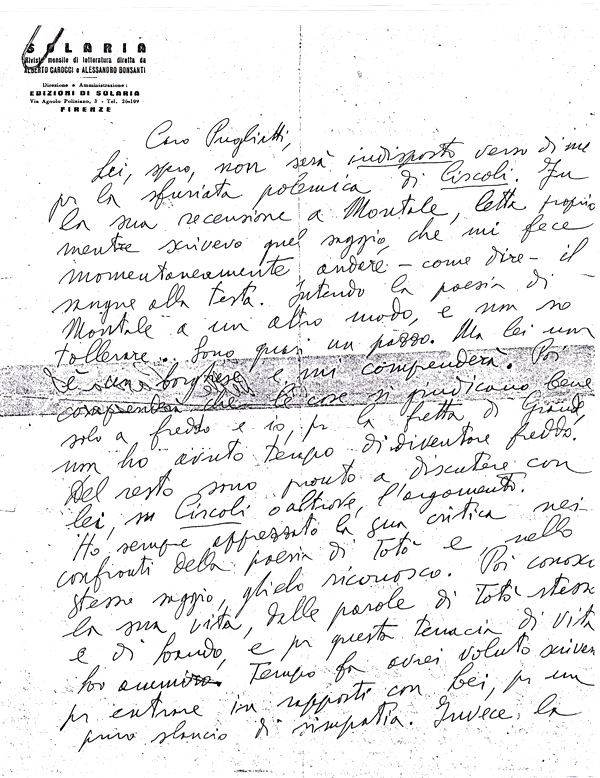 SOLARIA
Rivista mensile di letteratura diretta da
ALBERTO CAROCCI e ALESSANDRO BONSANTI
Direzione e Amministrazione:
EDIZIONI DI SOLARIA
Via Agnolo Poliziano, 3 - Tel. 26-109
FIRENZE
Caro Pugliatti,
Lei, spero, non sarà indisposto verso di me
per la sfuriata polemica di Circoli. Fu
la sua recensione a Montale, letta proprio
mentre scrivevo quel saggio, che mi fece
momentaneamente andare - come dire - il
sangue alla testa. Intendo la poesia di
Montale a un altro modo, e non so
tollerare... Sono quasi un pazzo. Ma lei non
è un borghese e mi comprenderà. Poi
comprenderà che le cose si giudicano bene
solo a freddo e io, per la fretta di Grande,
non ho avuto tempo di diventare freddo.
Del resto sono pronto a discutere con
lei, su Circoli o altrove, l'argomento.
Ho sempre apprezzato la sua critica nei
confronti della poesia di Totò e, nello
stesso saggio, glielo riconosco. Poi conosco
la sua vita, dalle parole di Totò stesso
e di, e per questa tenacia di vita
ho ammiro. Tempo fa avrei voluto scriver
per entrare in rapporti con Lei, per un
puro slancio di simpatia. Invece, la